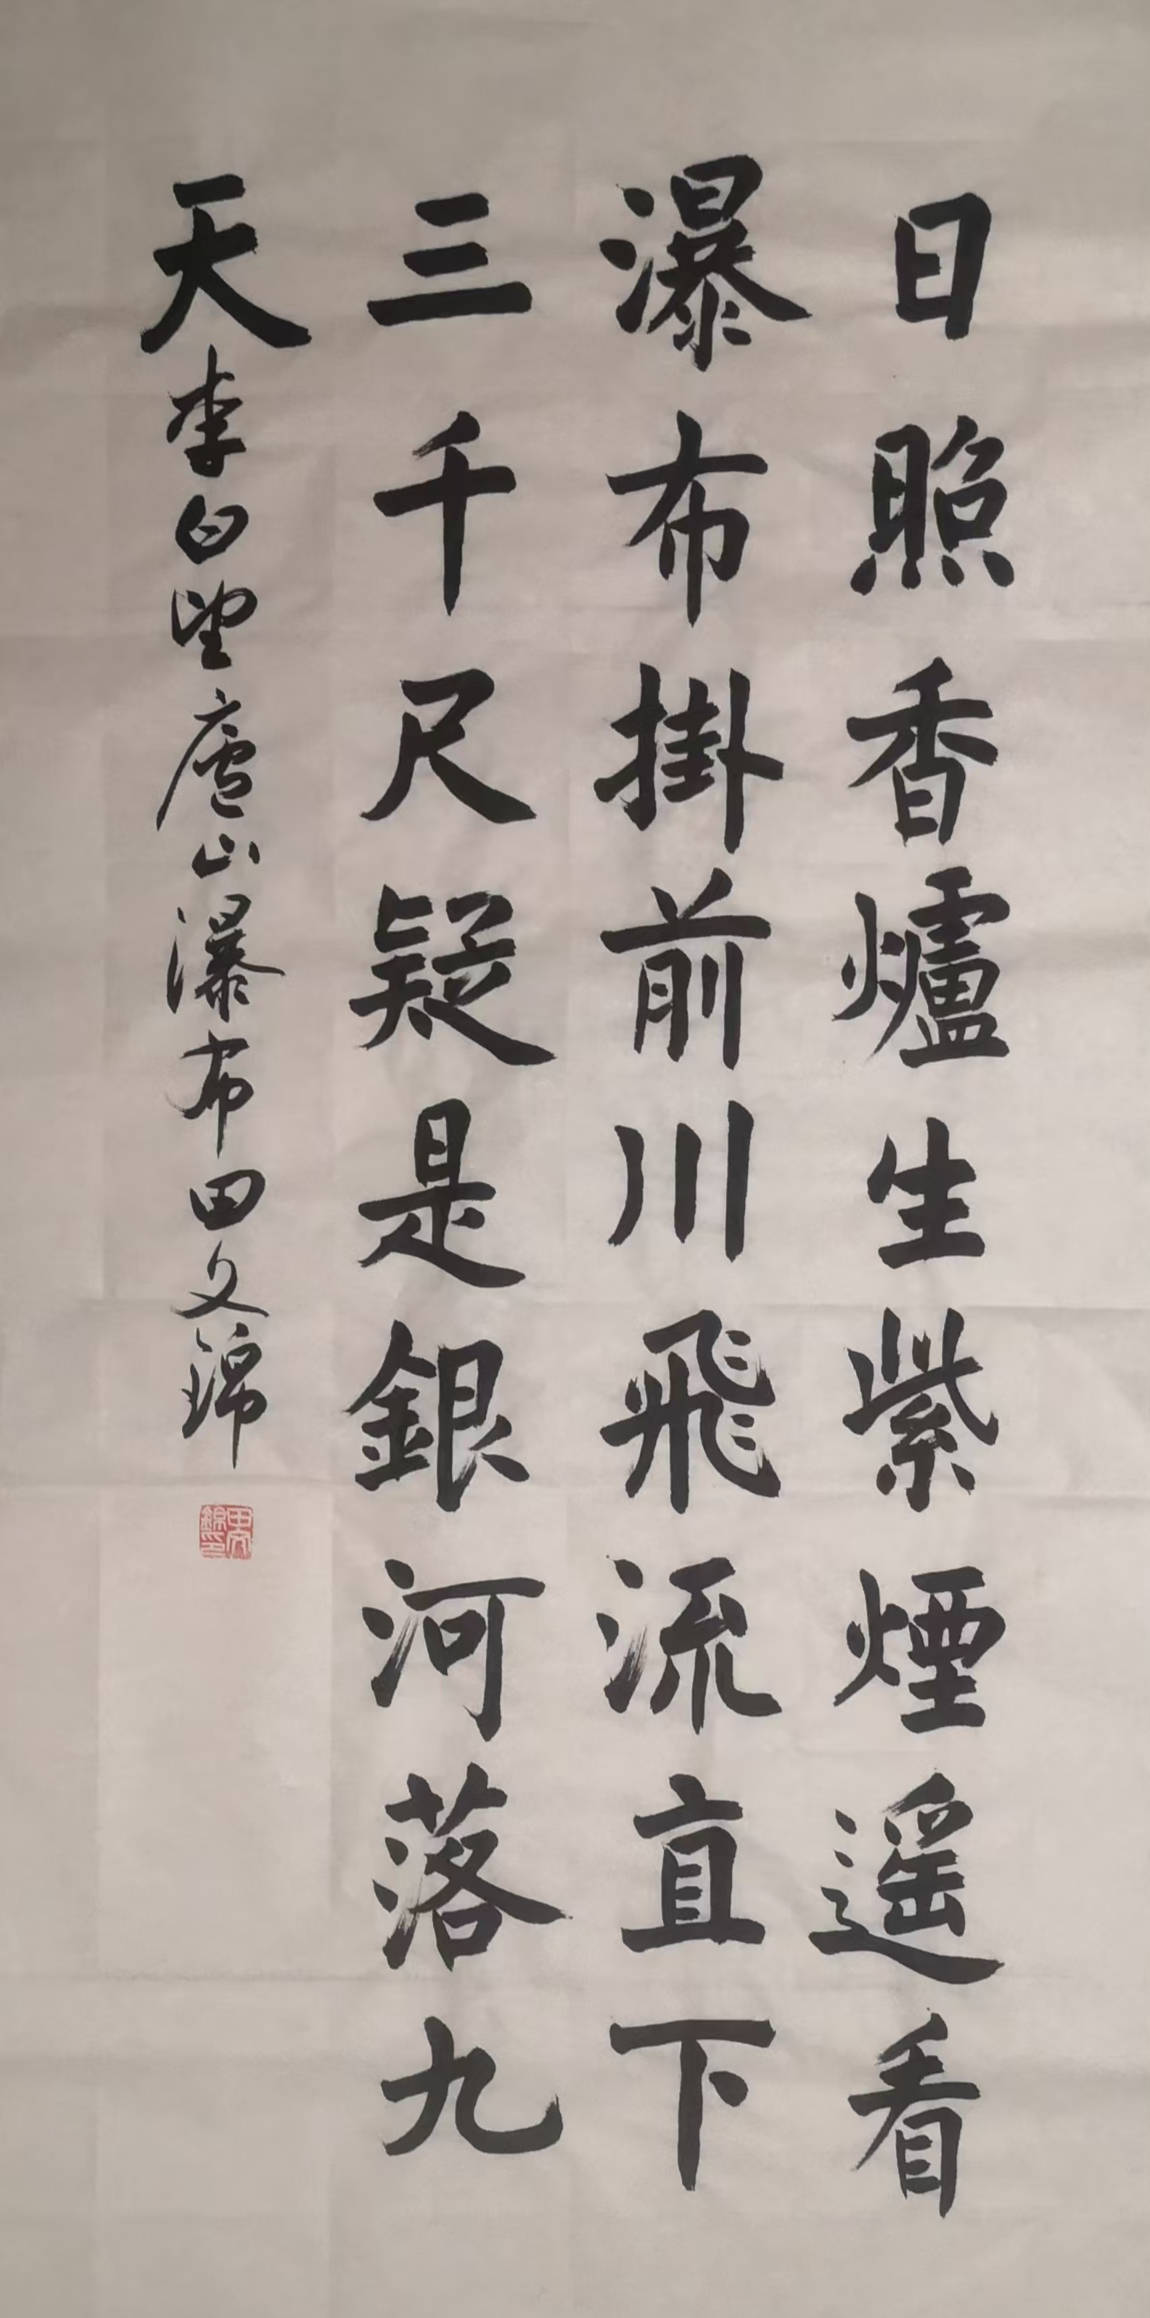 日照香爐生紫煙遥看
瀑布掛前川飛流直下
三千尺疑是銀河落九
天
李白望廬山瀑布田文錦
田文錦印